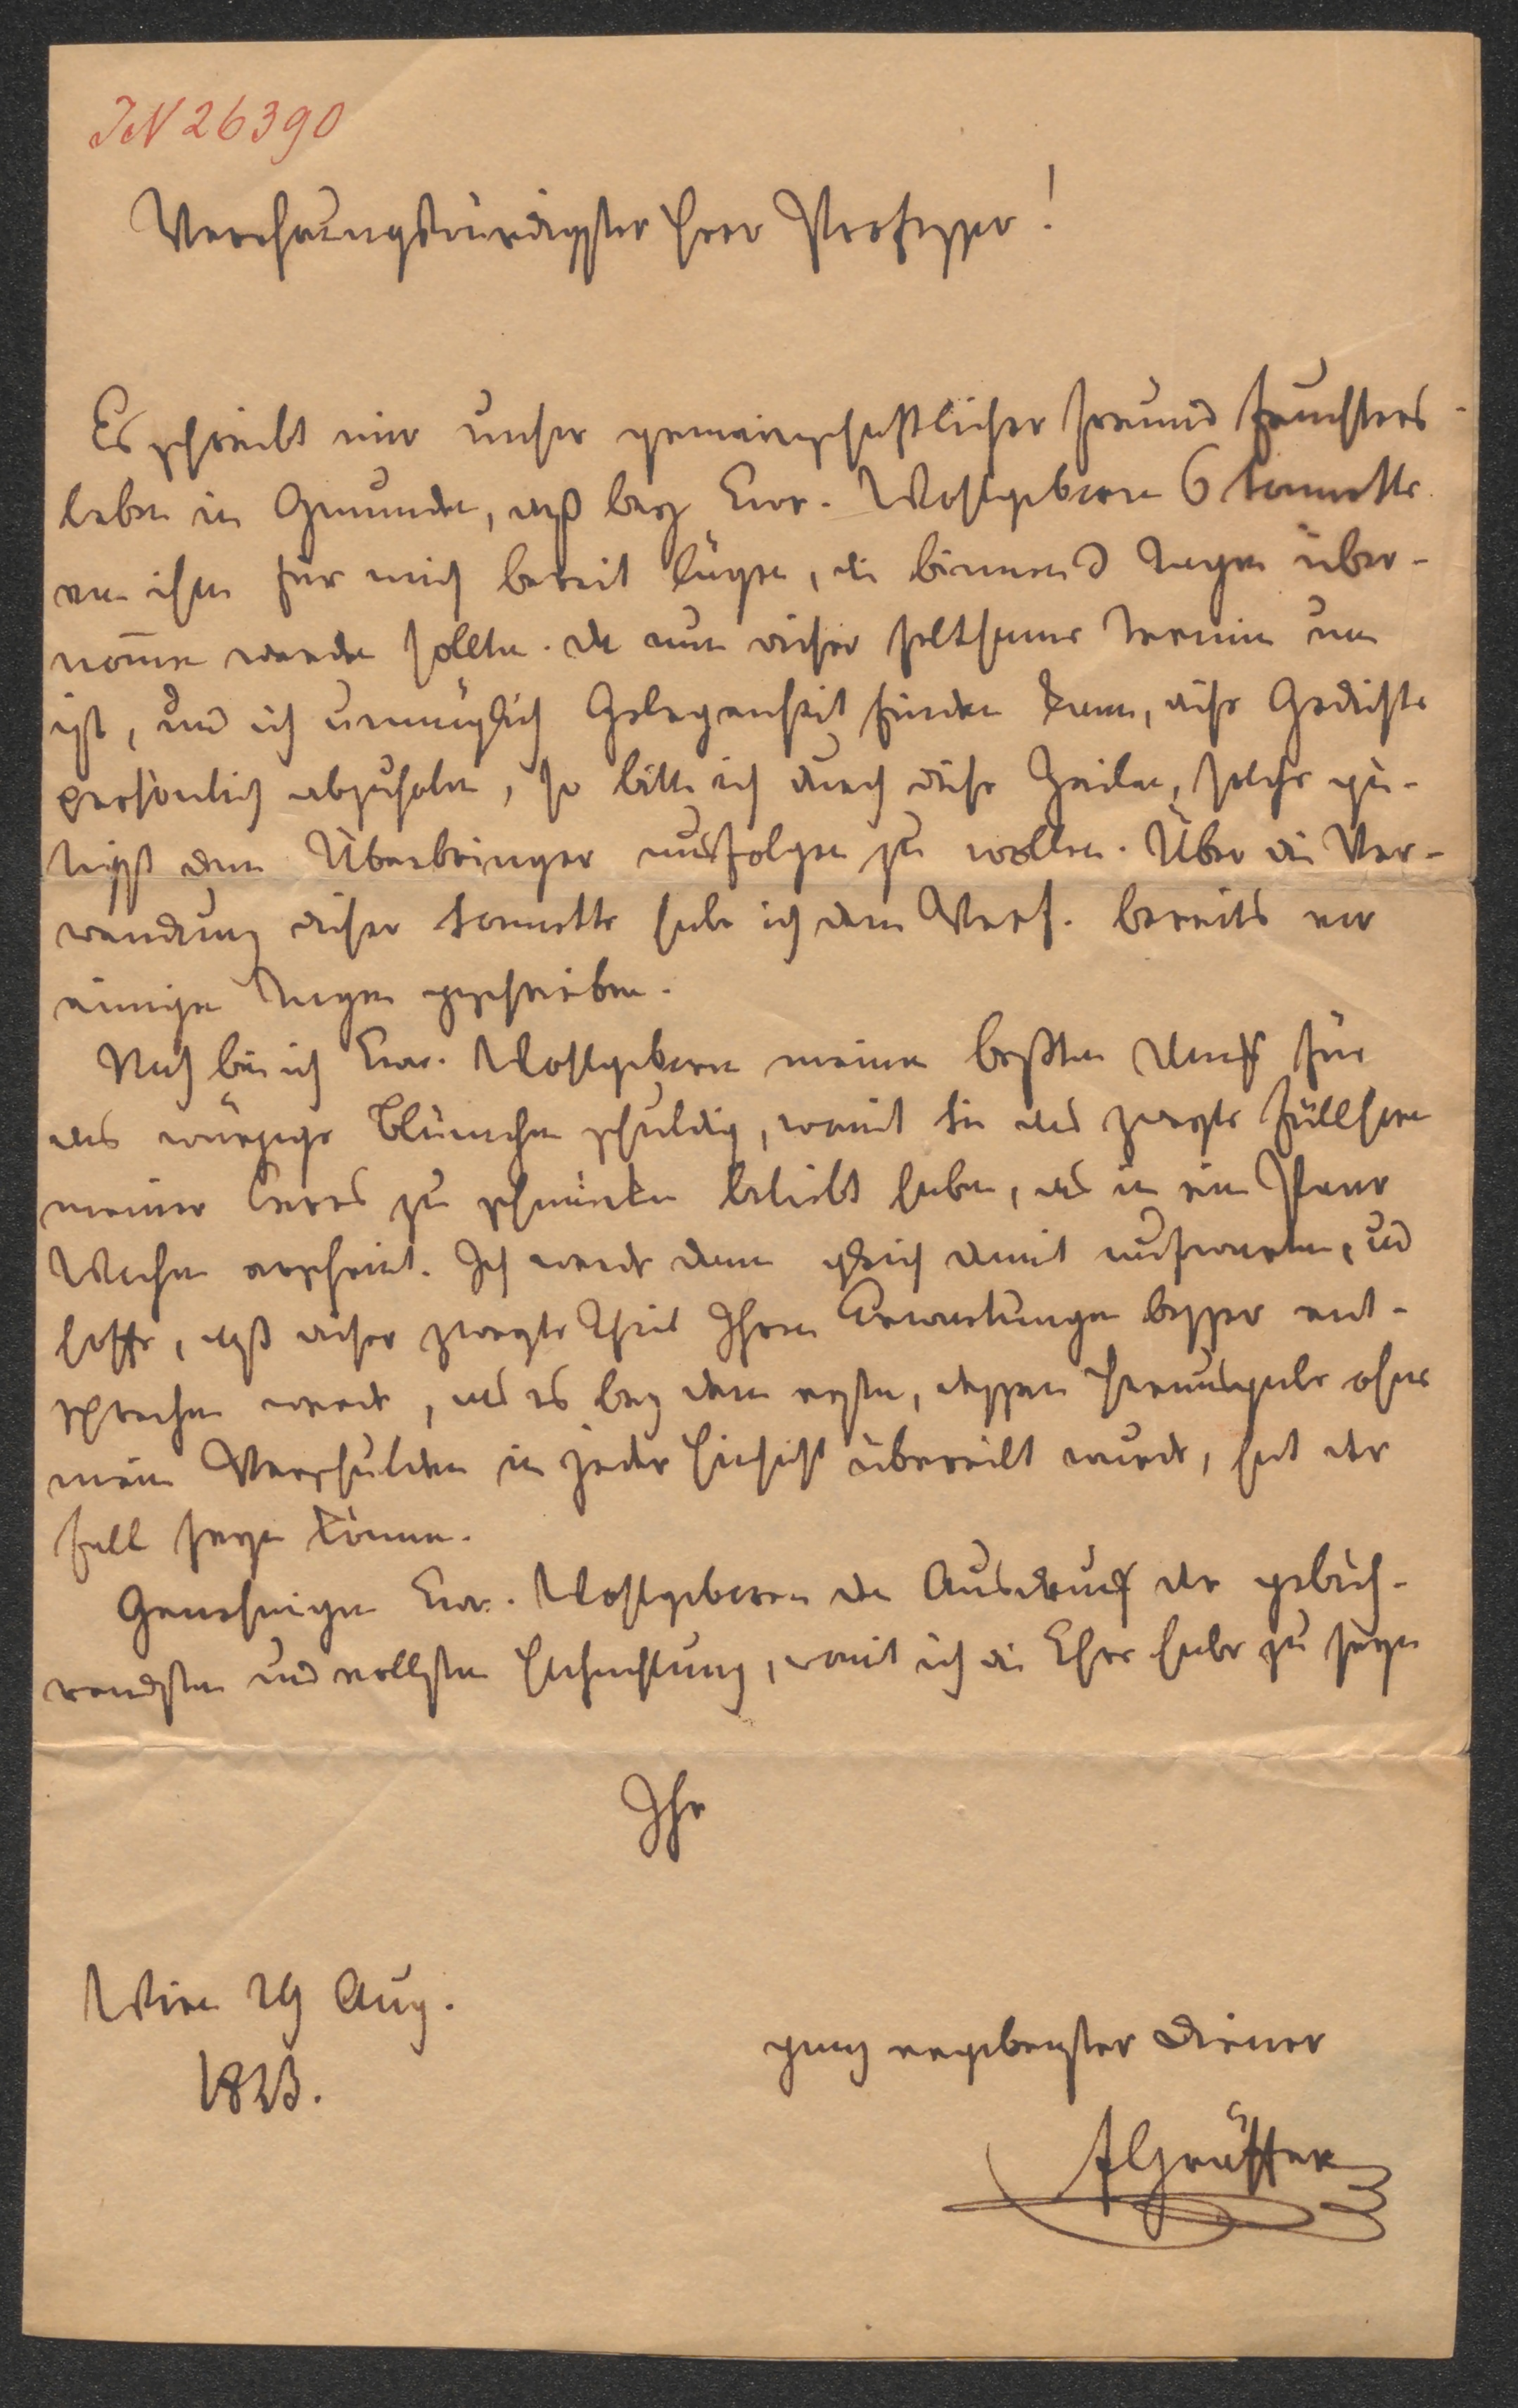 IN 26390
Verehrungswürdigster Herr Professor!
Es schreibt mir unser gemeinschaftlicher Freund Feuchters-
leben in Gmunden, daß bey Euer. Wohlgeboren 6 Sonnette
von ihm für mich bereit lägen, die binnen 3 Tagen über-
nom̄en werden sollten. Da nun dieser seltsame Termin um
ist, und ich unmöglich Gelegenheit finden kann, diese Gedichte
persönlich abzuholen, so bitte ich durch diese Zeilen, solche gü-
tigst dem Überbringer ausfolgen zu wollen. Über die Ver-
wendung dieser Sonnette habe ich dem Verf. bereits vor
einigen Tagen geschrieben.
Noch bin ich Euer. Wohlgeboren meinen beßten Dank für
das würzige Blümchen schuldig, womit Sie das zweyte Füllhorn
meiner Ceres zu schmücken beliebt haben, das in ein Paar
Wochen erscheint. Ich werde dann gleich damit aufwarten, und
hoffe, daß dieser zweyte Theil Ihren Erwartungen besser ent-
sprechen werde, als es bey dem ersten, dessen Herausgabe ohne
mein Verschulden in jeder Hinsicht übereilt wurde, hat der
Fall seyn können.
Genehmigen Euer. Wohlgeboren den Ausdruck der gebüh-
rendsten und vollsten Hochachtung, womit ich die Ehre habe zu seyn
Ihr
Wien 29 Aug.
1823.
ganz ergebenster Diener
FGräffer